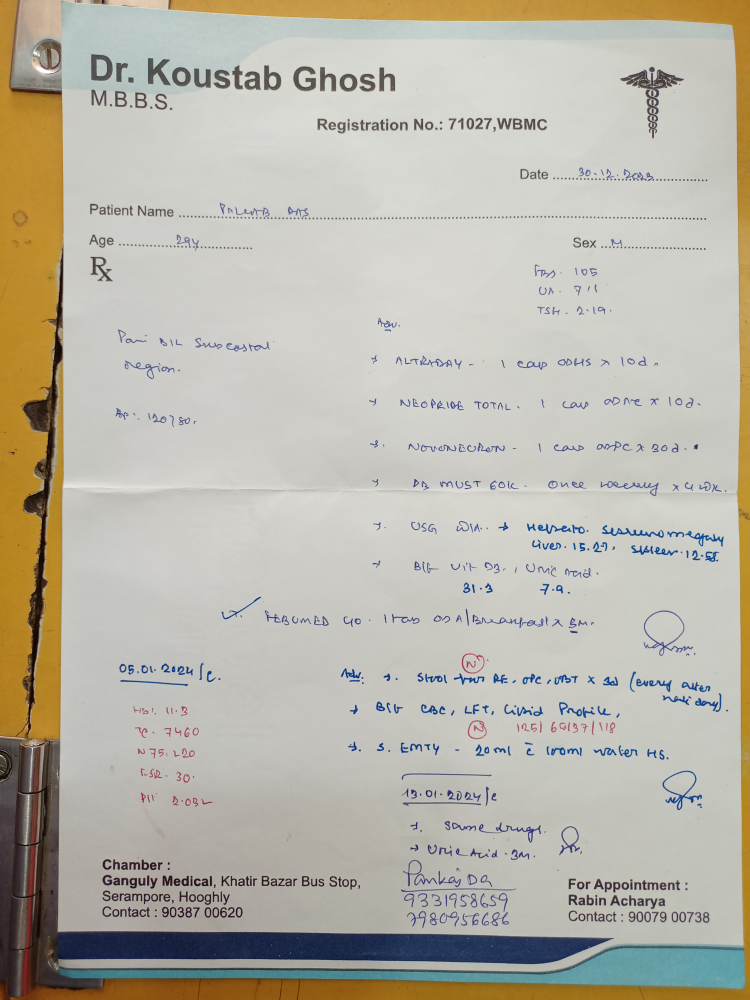 Dr. Koustab Ghosh
M.B.B.S.
Registration No.: 71027,WBMC
Date 30.12.2023
Patient Name PALLAB DAS
Age 29y
Sex M
Rx
FBS. 105
UA. 7.1
TSH. 2.19.
Adv.
Pain B/L Subcostal
region.
BP:. 120/80.
ALTRADAY - 1 cap ODHS x 10d.
NEOPRIDE TOTAL. 1 cap ODAC x 10d.
NOVONEURON - 1 cap ODPC x 30d.
D3 MUST 60K. Once weekly x 4 wk.
USG W/A. → Hepato. Splenomegaly
Liver. 15.27, Spleen. 12.58.
Bld Vit D3., Uric Acid.
31.3 7.9.
FEBUMED 40. 1 tab OD A/Breakfast x 3m.
05.01.2024/c.
Adv. Stool for RE, OPC, OBT x 3d (every alter
nate day).
N
Bld CBC, LFT, Lipid Profile,
N 125/69/37/118
S. EMTY - 20ml c 100ml water HS.
Hb. 11.3
Tc. 7460
N 75. L20
ESR. 30.
Plt 2.03L
13.01.2024/c
Same drugs.
Uric Acid. 3m.
Pankaj Da
9331958659
7980956686
Chamber :
Ganguly Medical, Khatir Bazar Bus Stop,
Serampore, Hooghly
Contact : 90387 00620
For Appointment :
Rabin Acharya
Contact : 90079 00738